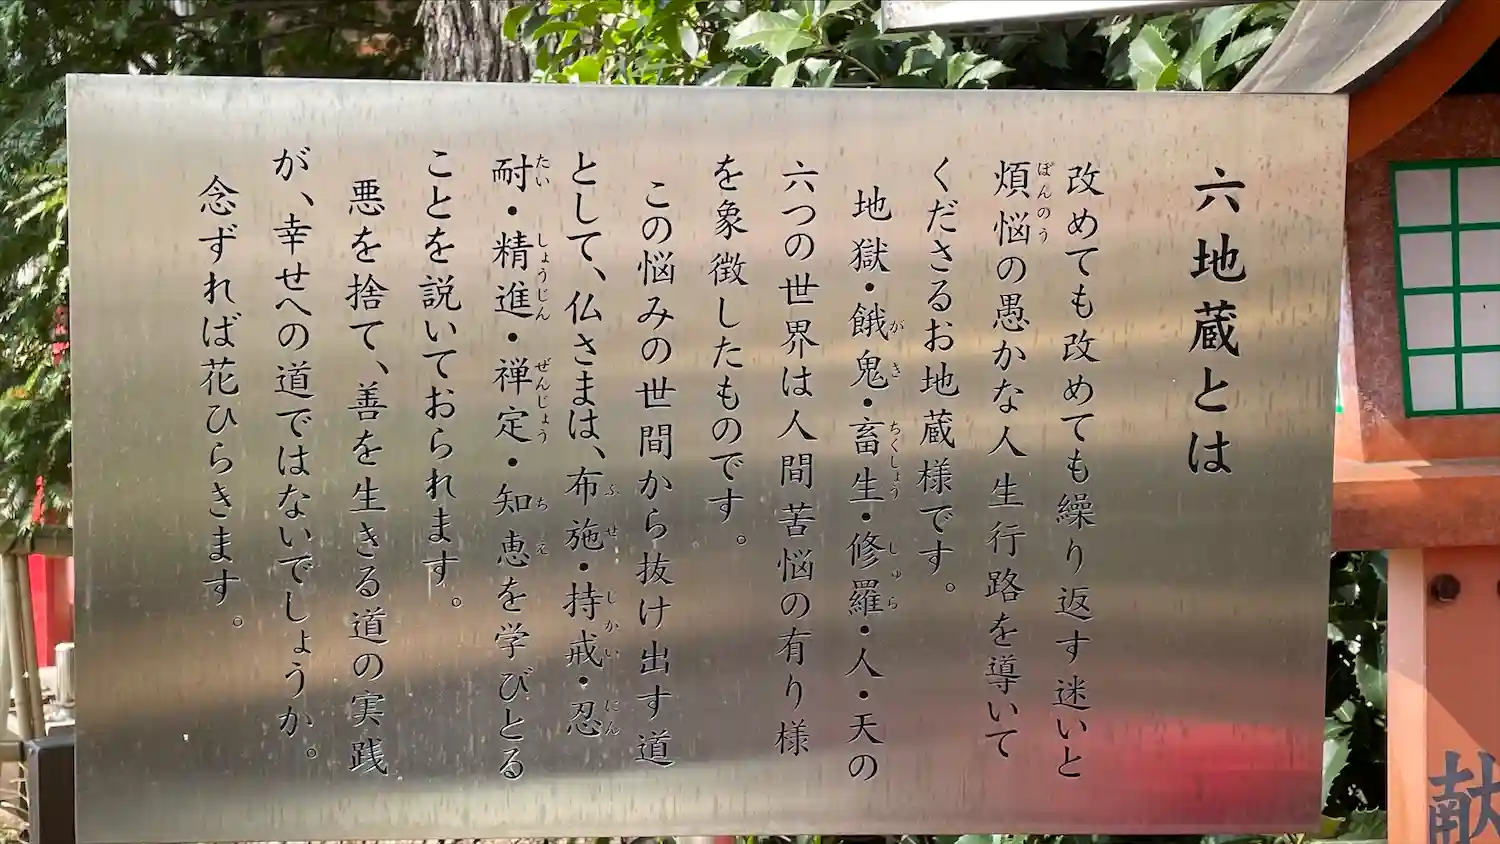 六地蔵とは
改めても改めても繰り返す迷いと
煩悩の愚かな人生行路を導いて
ぼんのう
くださるお地蔵様です。
地獄・餓鬼・畜生・修羅・人・天の
がき ちくしょう しゅら
六つの世界は人間苦悩の有り様
を象徴したものです。
この悩みの世間から抜け出す道
として、仏さまは、布施・持戒・忍
ふせ しかい にん
耐・精進・禅定・知恵を学びとる
たい しょうじん ぜんじょう ちえ
ことを説いておられます。
悪を捨て、善を生きる道の実践
が、幸せへの道ではないでしょうか。
念ずれば花ひらきます。
献